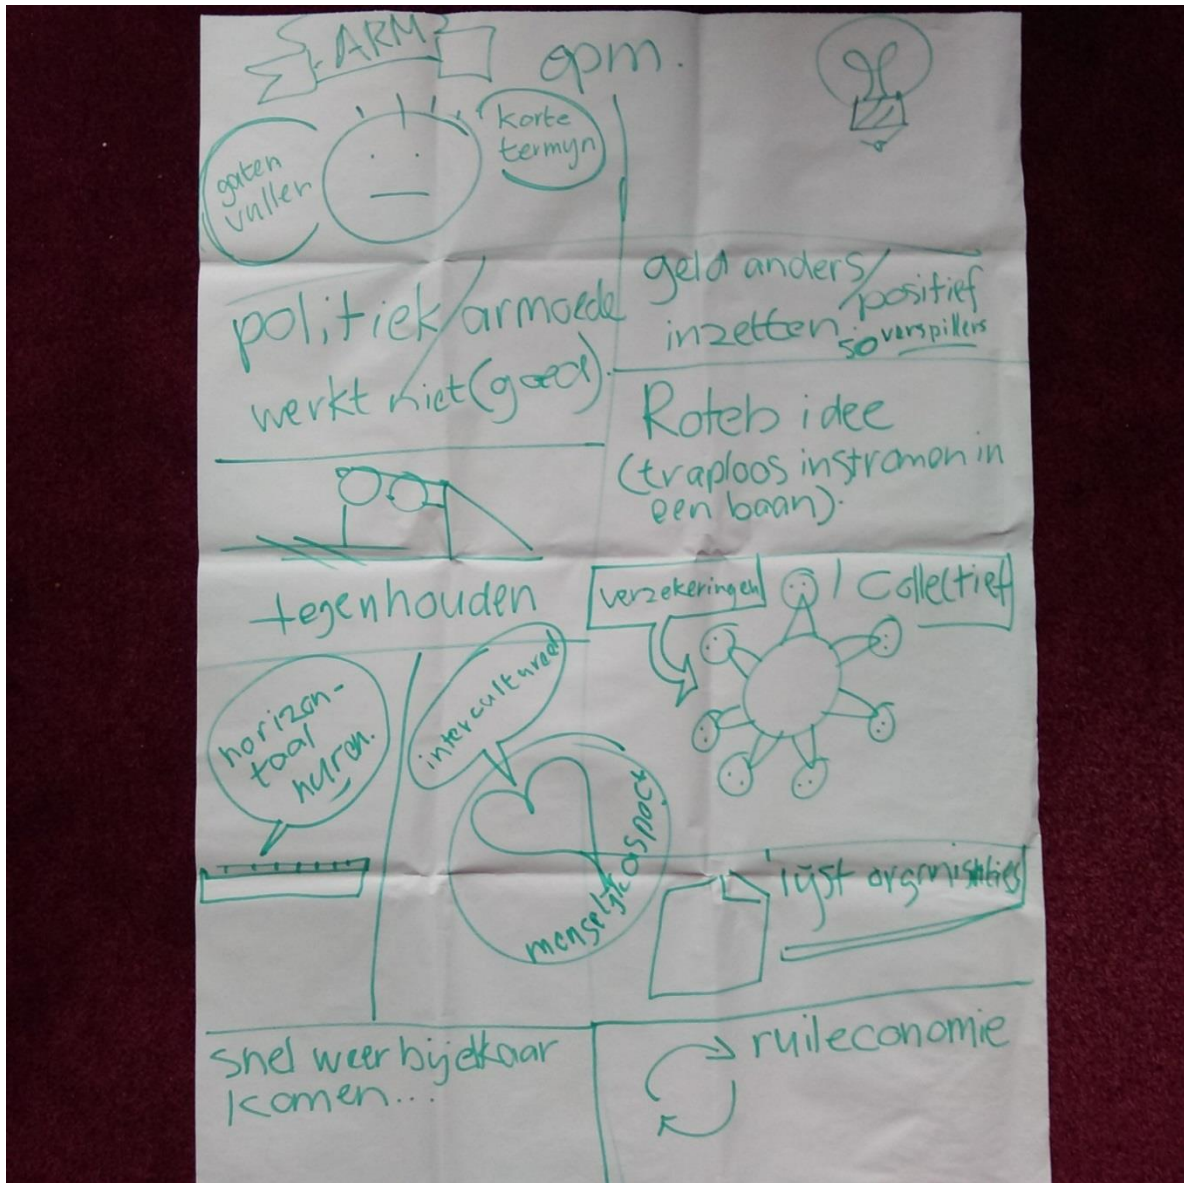 ARM
opm.
gaten
vullen
korte
termyn
politiek/armoede
werkt niet (goed).
geld anders/
inzetten /positief
50 verspillers
Roteb idee
(traploos instromen in
een baan).
tegenhouden
verzekeringen
/ Collectief
horizon-
taal
huren.
intercultureel
menselijk aspect
lijst organisaties
snel weer bij elkaar
komen...
ruileconomie